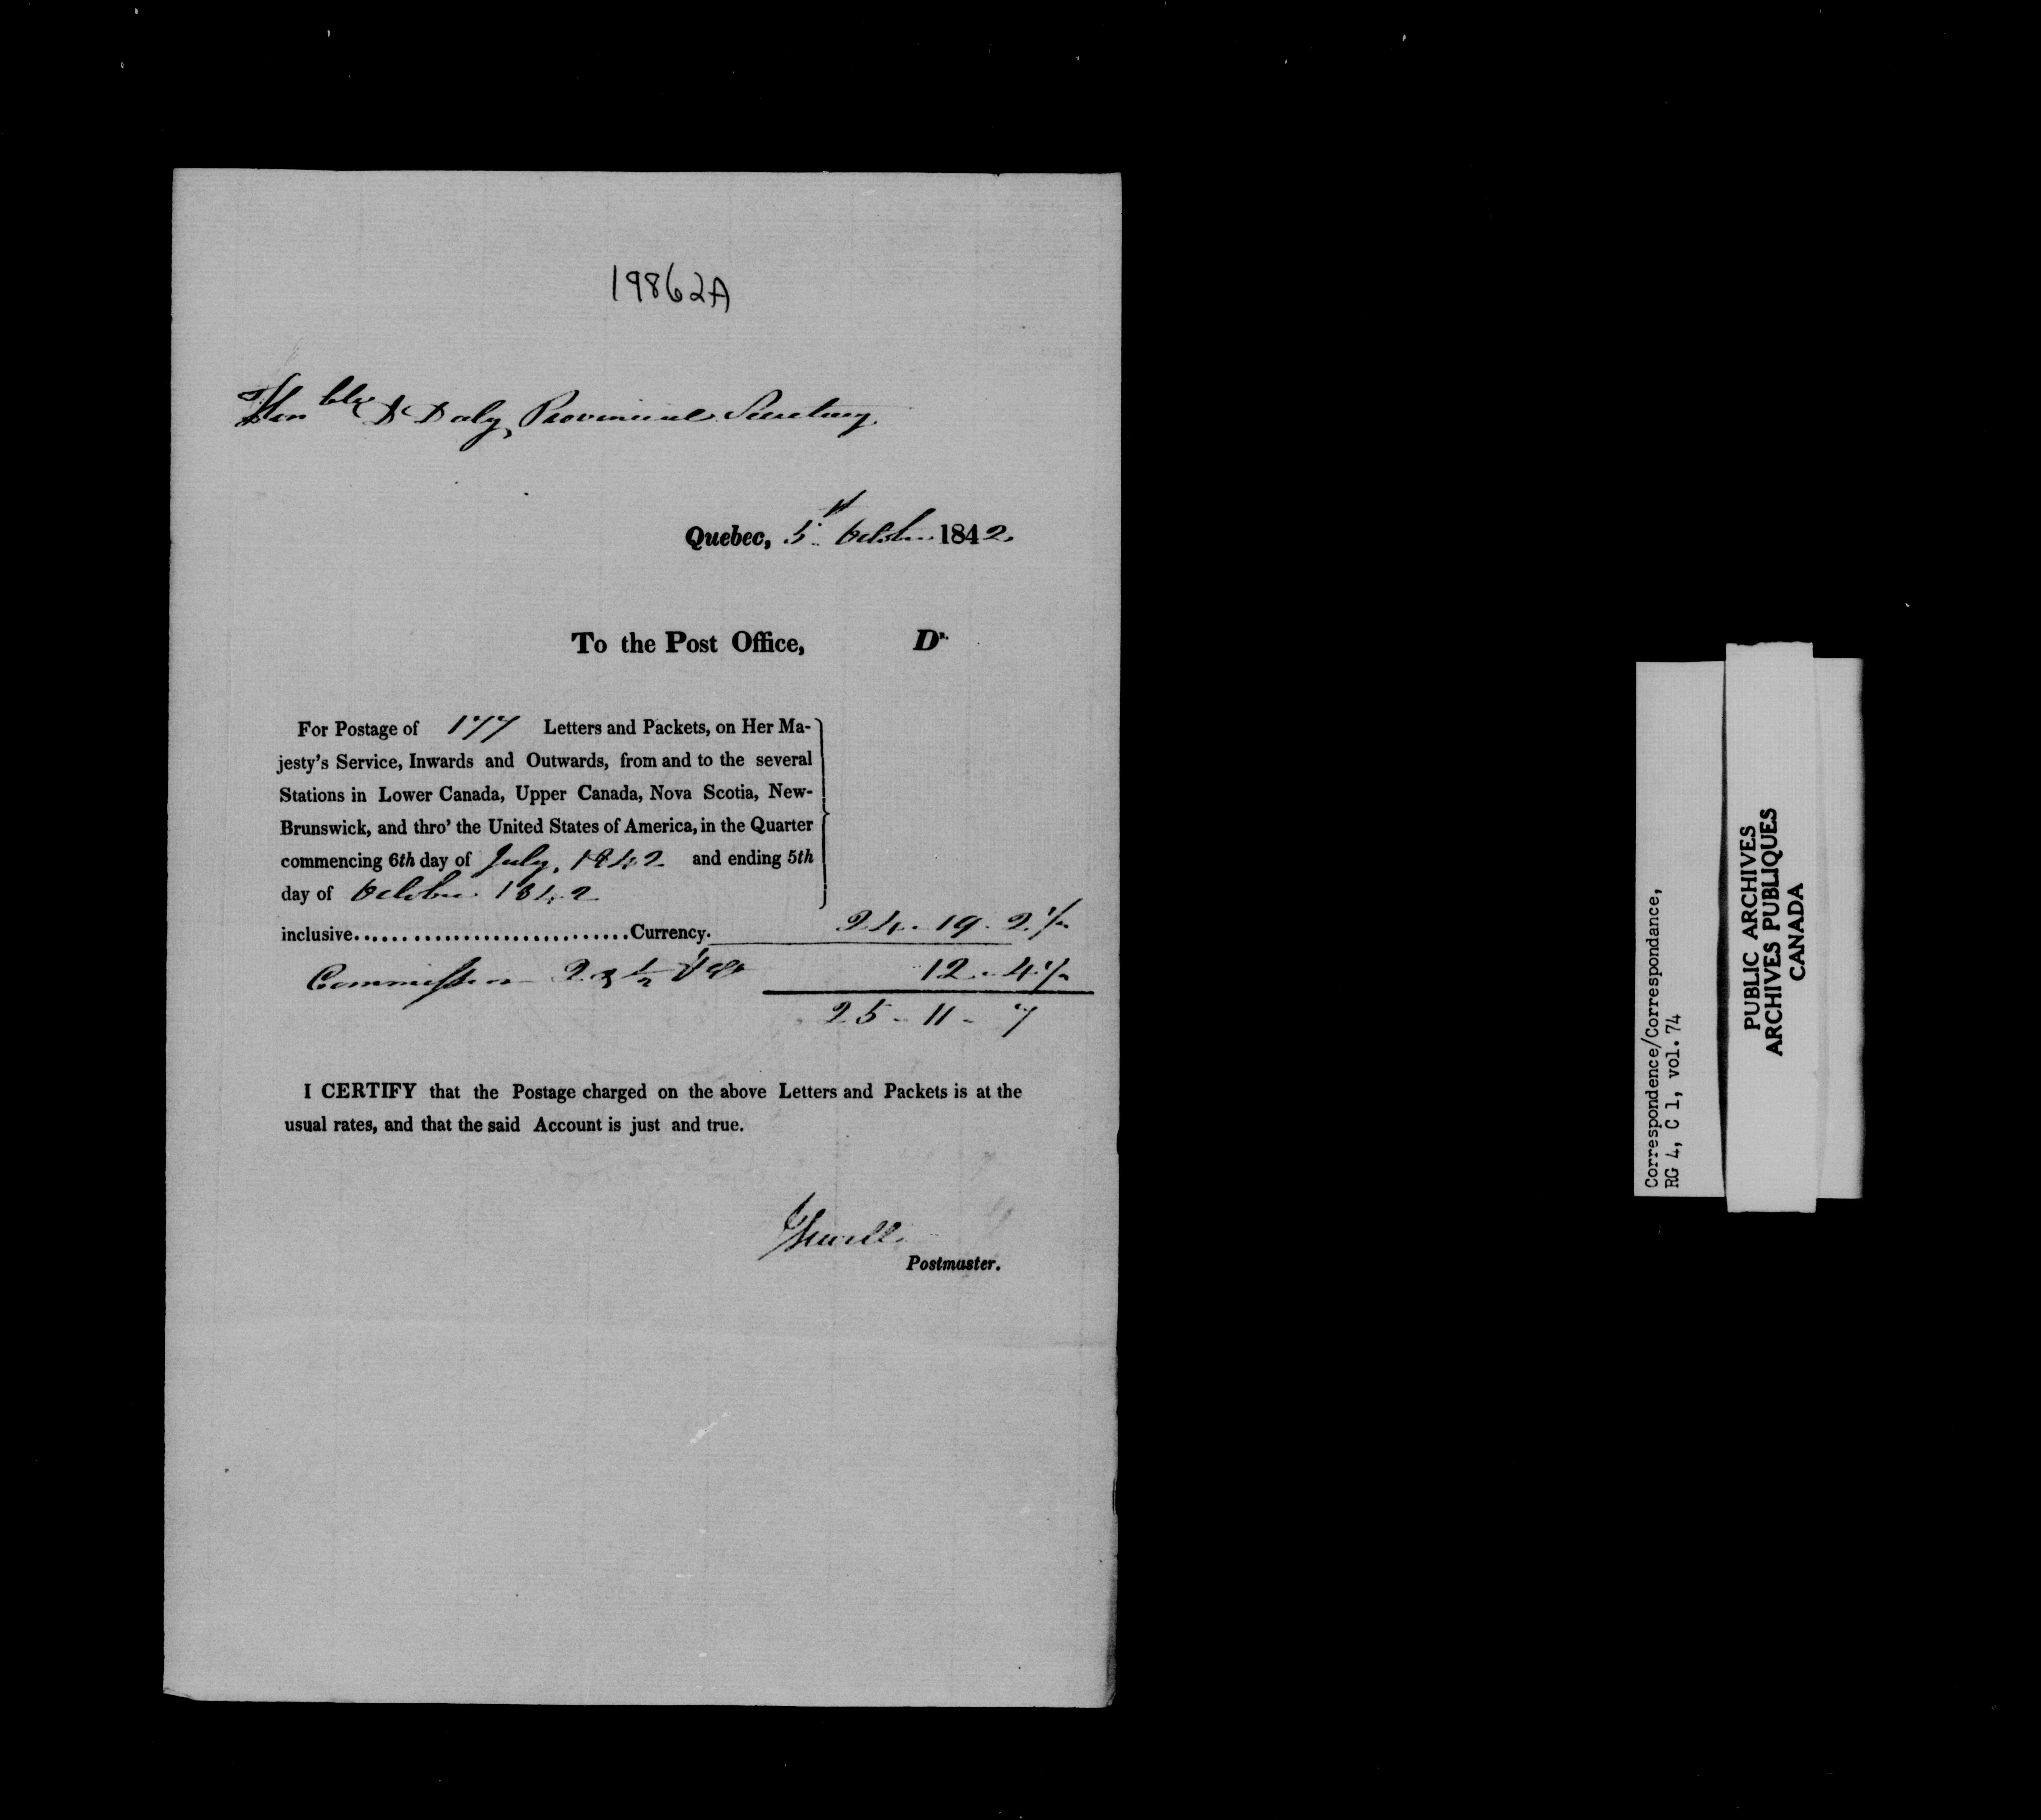 19862A
Honble D Daly, Provincial Secretary
Quebec, 5th October 1842.
To the Post Office, Dr.
For Postage of 177 Letters and Packets, on Her Ma-
jesty's Service, Inwards and Outwards, from and to the several
Stations in Lower Canada, Upper Canada, Nova Scotia, New-
Brunswick, and thro' the United States of America, in the Quarter
commencing 6th day of July, 1842 and ending 5th
day of October 1842
inclusive............................Currency. 24 - 19 - 2 1/2
Commission 2 1/2 12 - 4 1/2
25 - 11 - 7
I CERTIFY that the Postage charged on the above Letters and Packets is at the
usual rates, and that the said Account is just and true.
JSewell
Postmaster.
Correspondence/Correspondance,
RG 4, C 1, vol. 74
PUBLIC ARCHIVES
ARCHIVES PUBLIQUES
CANADA